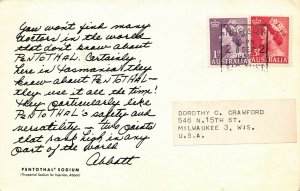 You won't find many
doctors in the world
that don't know about
PENTOTHAL. Certainly
here in Tasmania they
know about PENTOTHAL—
they use it all the time!
They particularly like
PENTOTHAL's safety and
versatility — two points
that rank high in any
part of the world
Abbott
PENTOTHAL® SODIUM
(Thiopental Sodium for Injection, Abbott)
AUSTRALIA
AUSTRALIA
DOROTHY C. CRAWFORD
546 N.15TH ST.
MILWAUKEE 3, WIS.
U.S.A.